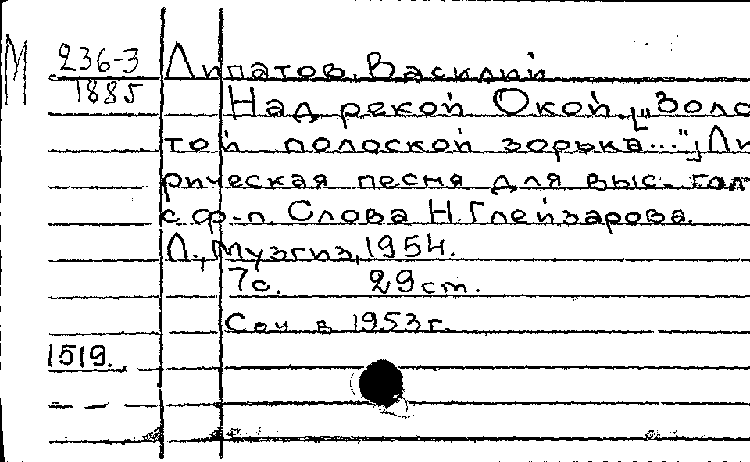 М 236-3 Липатов, Василий
1885
Над рекой Окой. ["Золо
той полоской зорька..."] Ли
рическая песня для выс. гол.
с ф-п. Слова Н. Глейзарова.
Л., Музгиз, 1954.
7с. 29 ст.
Соч в 1953 г.
1519.